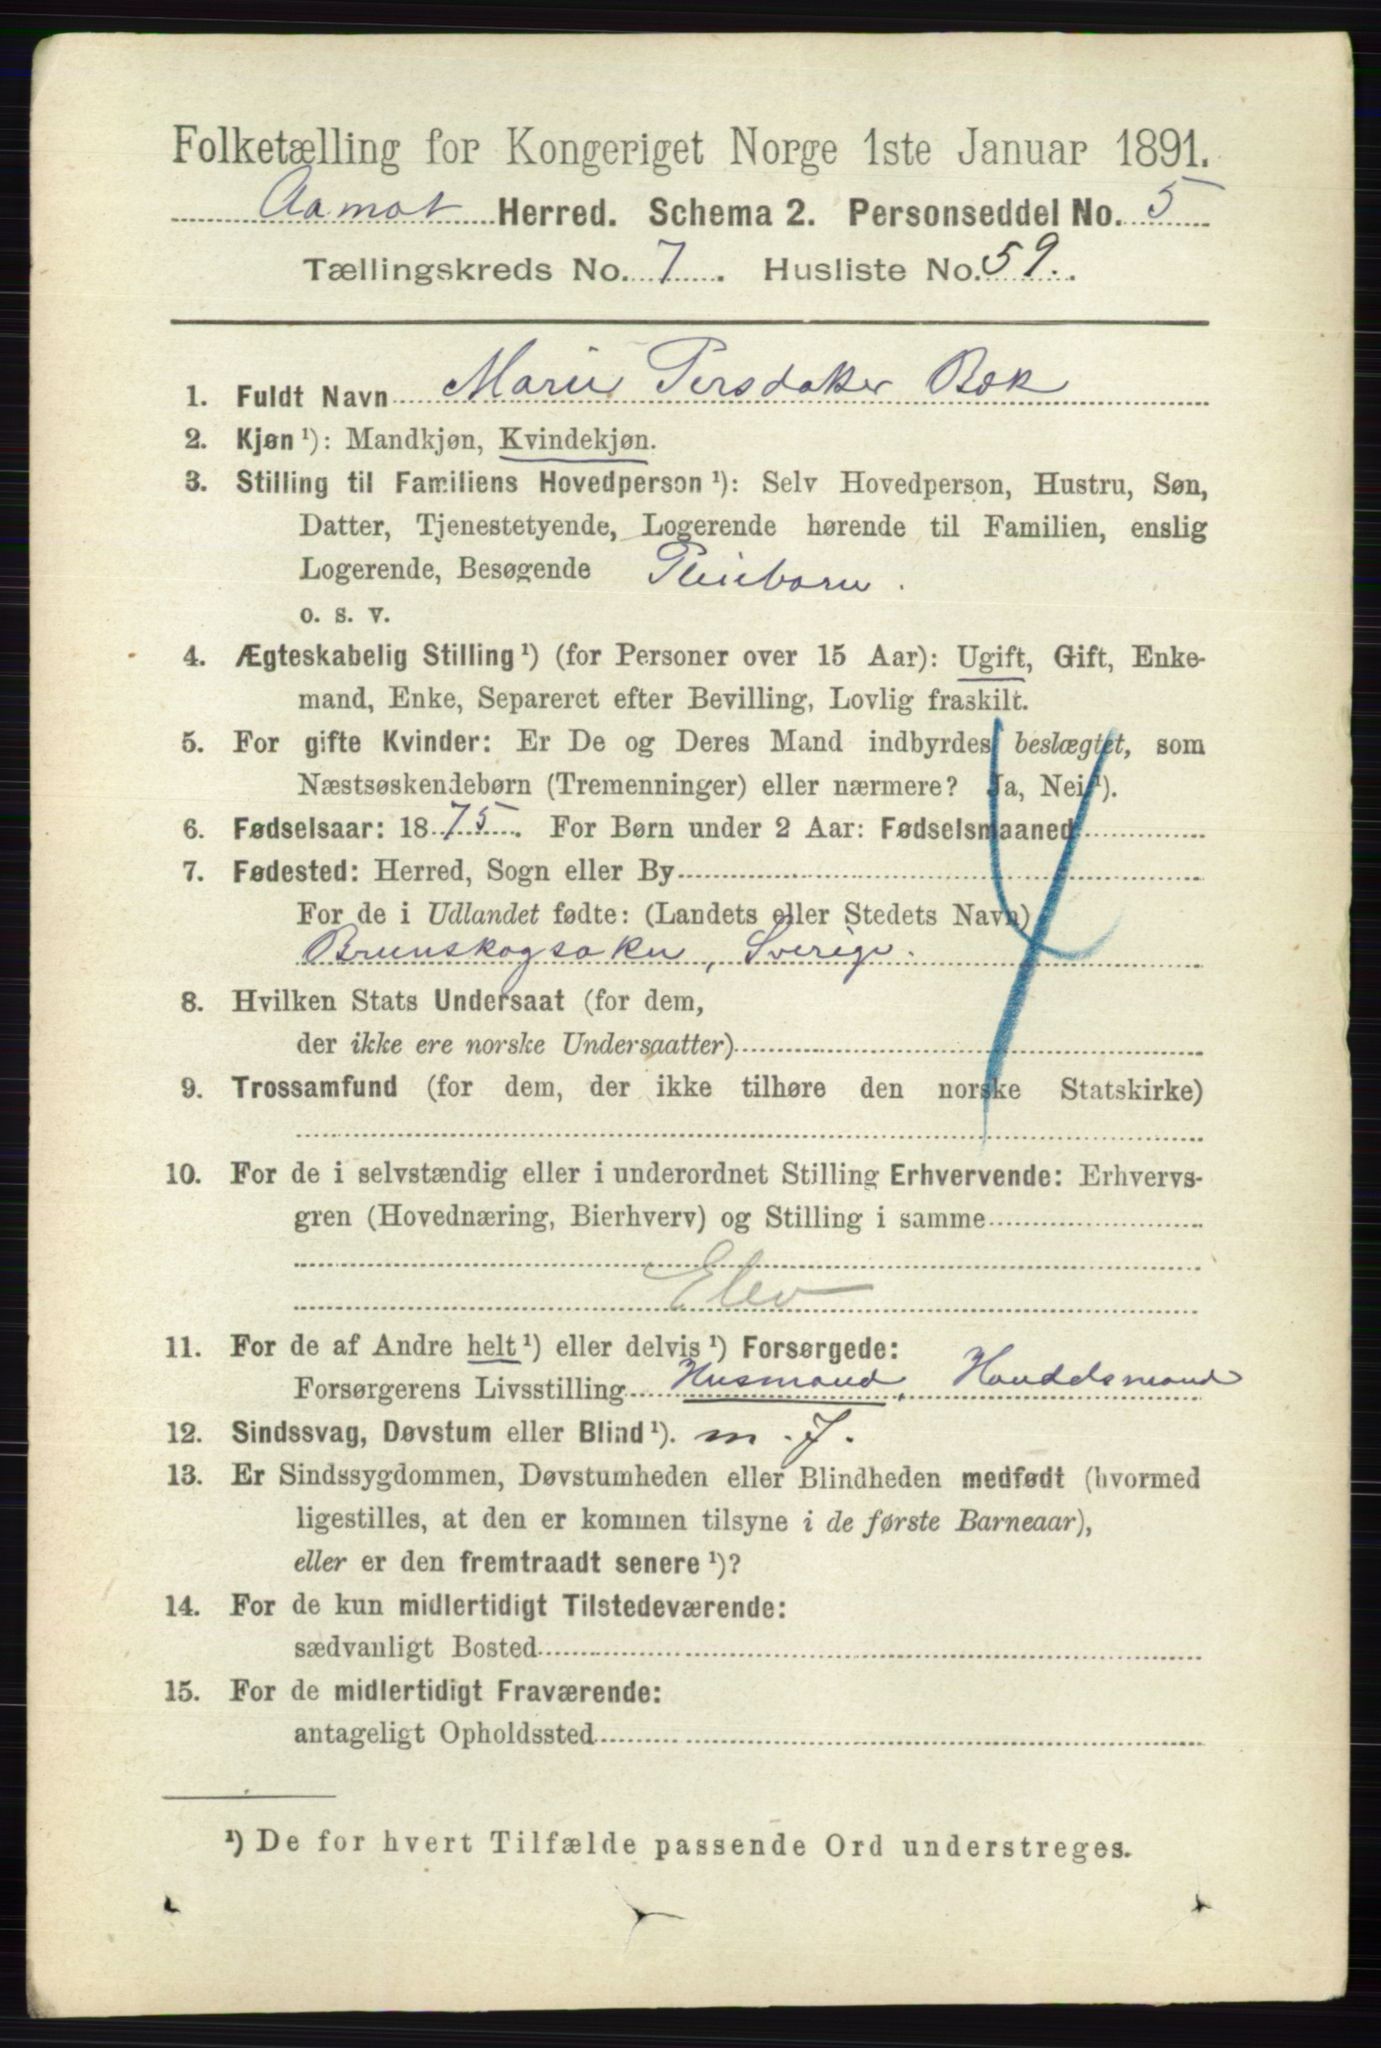 Folketælling for Kongeriget Norge 1ste Januar 1891.
Aamot Herred. Schema 2. Personseddel No. 5
Tællingskreds No. 7. Husliste No. 59.
1. Fuldt Navn Marie Persdatter Bek
2. Kjøn ¹): Mandkjøn, Kvindekjøn.
3. Stilling til Familiens Hovedperson ¹): Selv Hovedperson, Hustru, Søn,
Datter, Tjenestetyende, Logerende hørende til Familien, enslig
Logerende, Besøgende Pleiebarn.
o. s. v.
4. Ægteskabelig Stilling ¹) (for Personer over 15 Aar): Ugift, Gift, Enke-
mand, Enke, Separeret efter Bevilling, Lovlig fraskilt.
5. For gifte Kvinder: Er De og Deres Mand indbyrdes beslægtet, som
Næstsøskendebørn (Tremenninger) eller nærmere? Ja, Nei ¹).
6. Fødselsaar: 1875. For Børn under 2 Aar: Fødselsmaaned
7. Fødested: Herred, Sogn eller By
For de i Udlandet fødte: (Landets eller Stedets Navn)
Brunskogsoken, Sverige.
8. Hvilken Stats Undersaat (for dem,
der ikke ere norske Undersaatter)
9. Trossamfund (for dem, der ikke tilhøre den norske Statskirke)
10. For de i selvstændig eller i underordnet Stilling Erhvervende: Erhvervs-
gren (Hovednæring, Bierhverv) og Stilling i samme
Elev
11. For de af Andre helt ¹) eller delvis ¹) Forsørgede:
Forsørgerens Livsstilling Husmand, Handelsmand
12. Sindssvag, Døvstum eller Blind ¹). m. J.
13. Er Sindssygdommen, Døvstumheden eller Blindheden medfødt (hvormed
ligestilles, at den er kommen tilsyne i de første Barneaar),
eller er den fremtraadt senere ¹)?
14. For de kun midlertidigt Tilstedeværende:
sædvanligt Bosted
15. For de midlertidigt Fraværende:
antageligt Opholdssted
¹) De for hvert Tilfælde passende Ord understreges.